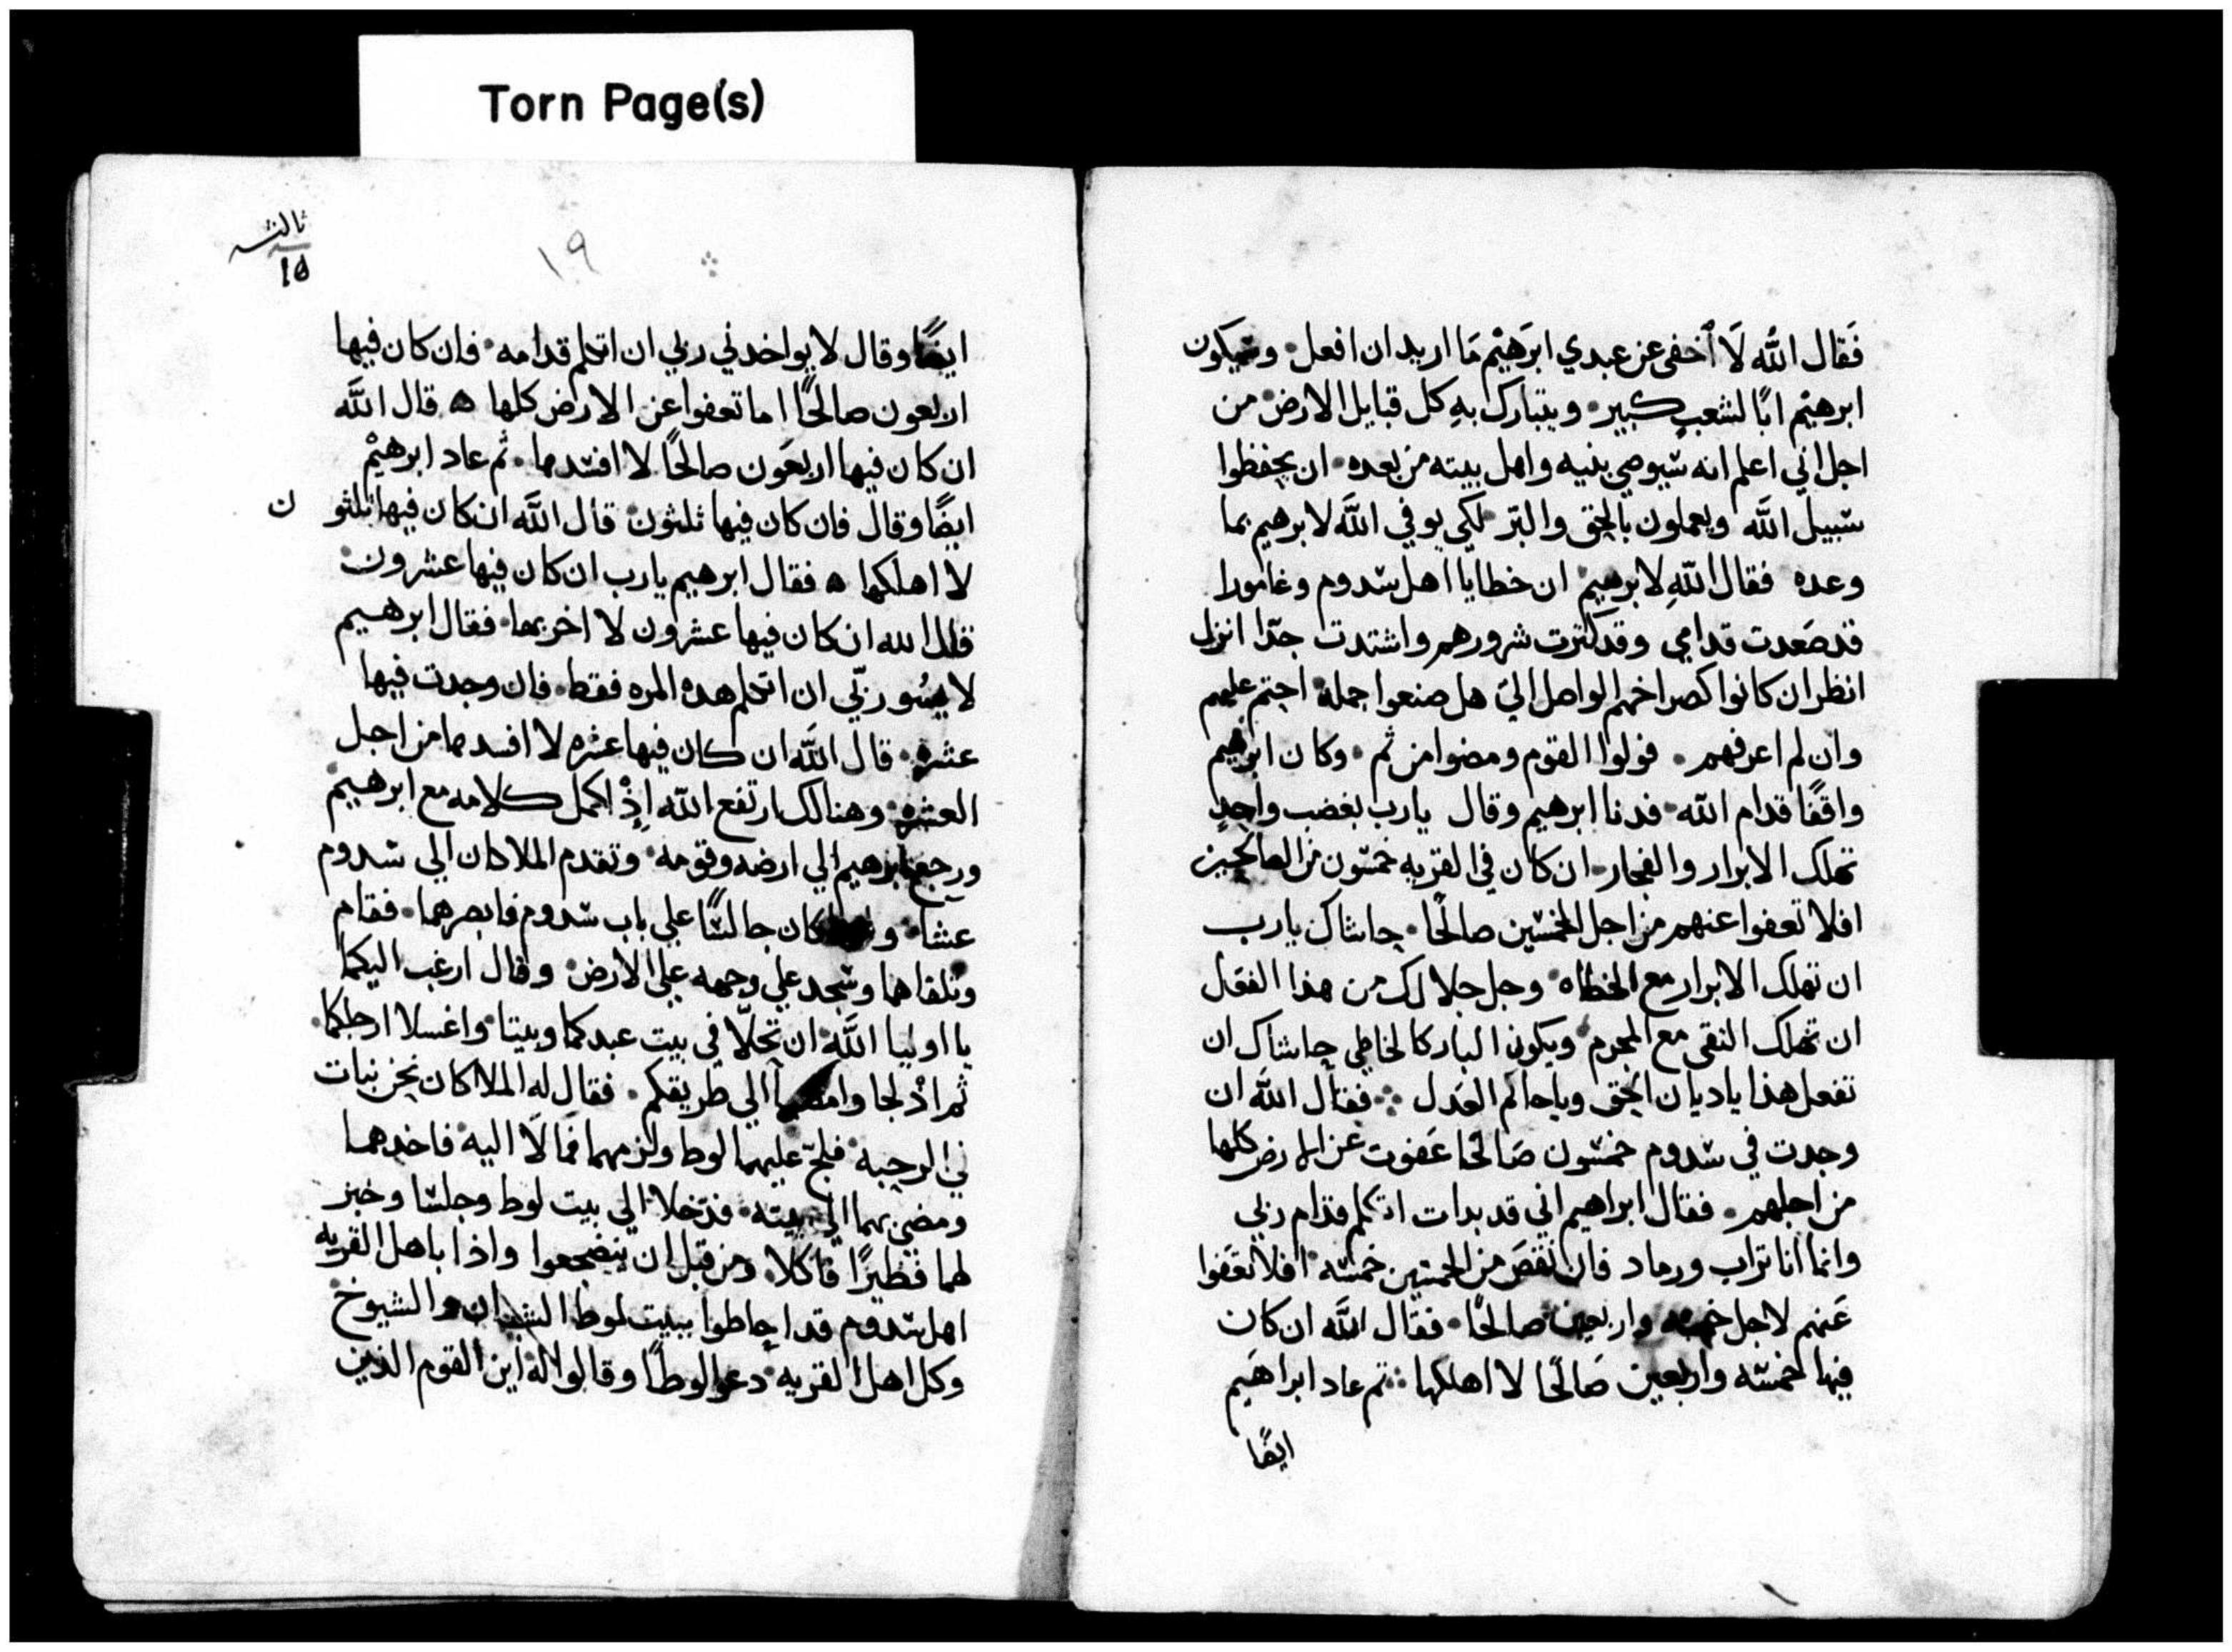 Torn Page(s)
فقال الله لا أخفى عن عبدي ابرهيم ما اريد ان افعل وسيكون
ابرهيم ابًا لشعب كبير ويتبارك به كل قبايل الارض من
اجل اني اعلم انه سيوصي بنيه واهل بيته من بعده ان يحفظوا
سبيل الله ويعملون بالحق والبر لكي يوفي الله لابرهيم بما
وعده فقال الله لابرهيم ان خطايا اهل سدوم وغامورا
قد صعدت قدامي وقد كثرت شرورهم واشتدت جدًا انزل
انظر ان كانوا كصراخهم الواصل الي هل صنعوا جمله اجتم عليهم
وان لم اعرفهم فولوا القوم ومضوا من ثم وكان ابرهيم
واقفًا قدام الله فدنا ابرهيم وقال يارب بغضب واحد
تهلك الابرار والفجار ان كان في القريه خمسون من الصالحين
افلا تعفوا عنهم من اجل الخمسين صالحًا حاشاك يارب
ان تهلك الابرار مع الخطاه وجل جلالك من هذا الفعل
ان تهلك النقى مع المجرم ويكون البار كالخاطي حاشاك ان
تفعل هذا ياديان الحق وياحاكم العدل فقال الله ان
وجدت في سدوم خمسون صالحًا عفوت عن الارض كلها
من اجلهم فقال ابراهيم اني قد بدات اتكلم قدام ربي
وانما انا تراب ورماد فان نقص من الخمسين خمسه افلا تعفوا
عنهم لاجل خمسه واربعين صالحًا فقال الله ان كان
فيها خمسه واربعين صالحًا لا اهلكها ثم عاد ابراهيم
ايضًا
ثالثه
١٥
١٩
ايضًا وقال لا يواخدني ربي ان اتكلم قدامه فان كان فيها
اربعون صالحًا اما تعفوا عن الارض كلها ه قال الله
ان كان فيها اربعون صالحًا لا افسدها ثم عاد ابرهيم
ايضًا وقال فان كان فيها ثلثون قال الله ان كان فيها ثلثو ن
لا اهلكها ه فقال ابرهيم يارب ان كان فيها عشرون
قال الله ان كان فيها عشرون لا اخربها فقال ابرهيم
لا ربي ان اتكلم هده المره فقط فان وجدت فيها
عشره قال الله ان كان فيها عشره لا افسدها من اجل
العشره وهنالك ارتفع الله إذ اكمل كلامه مع ابرهيم
ورجع ابرهيم الي ارضه وقومه وتقدم الملاكان الي سدوم
عشا كان جالسًا علي باب سدوم فابصرهما فقام
وتلقاهما وسجد علي وجهه علي الارض وقال ارغب اليكما
يا اوليا الله ان تحلّا في بيت عبدكما وبيتا واغسلا ارجلكما
ثم ادلجا الي طريقكم فقال له الملاكان نحن نبات
في الرحبه فلجّ عليهما لوط ولزمهما فمالا اليه فاخدهما
ومضى بهما الي بيته فدخلا الي بيت لوط وجلسا وخبز
لهما فطيرًا فاكلا ومن قبل ان ينضجعوا واذا باهل القريه
اهل سدوم قد احاطوا ببيت لوط الشبان والشيوخ
وكل اهل القريه دعوا لوطًا وقالوا له اين القوم الذين